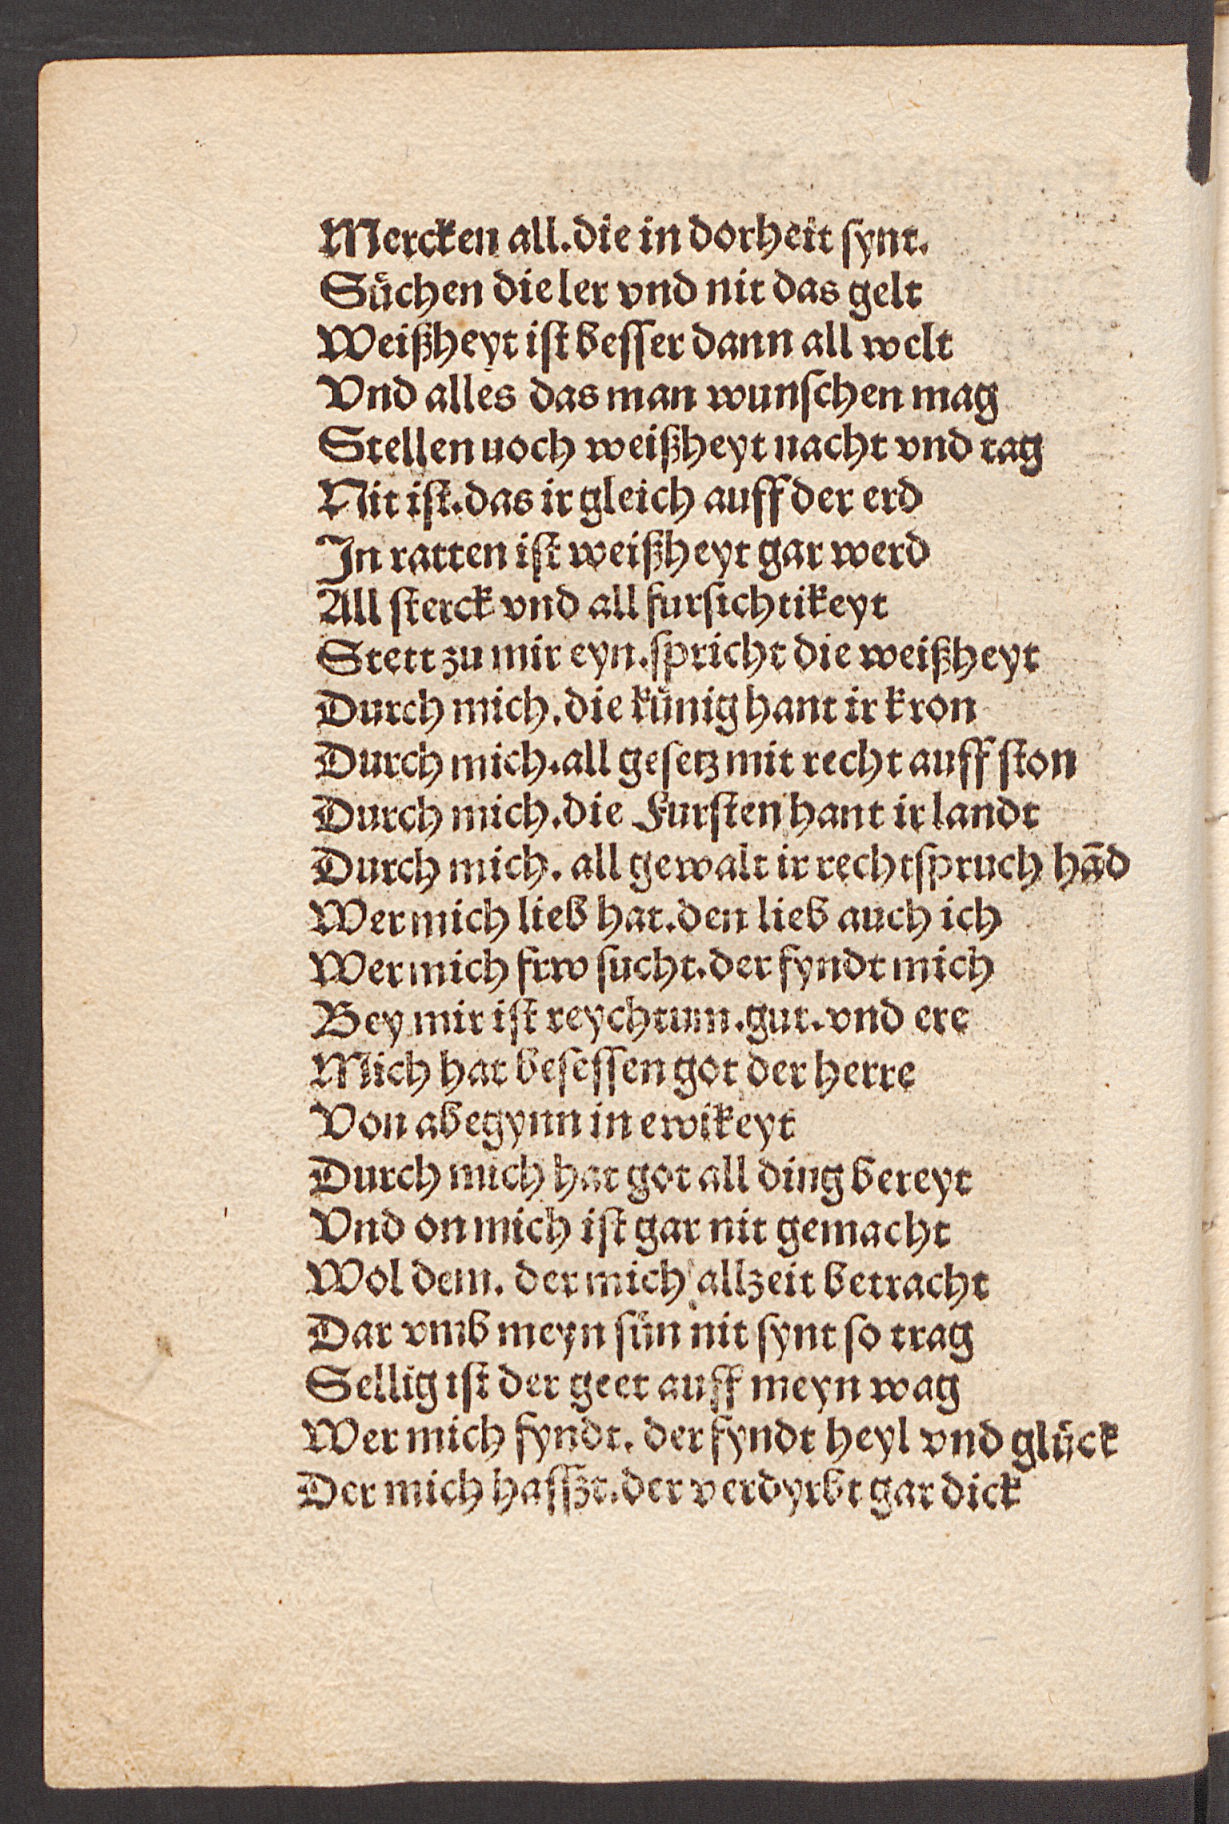 Mercken all.die in dorheit ſynt.
Sůchen die ler vnd nit das gelt
Weißheyt iſt beſſer dann all welt
Vnd alles das man wunſchen mag
Stellen noch weißheyt nacht vnd tag
Nit iſt.das ir gleich auff der erd
In ratten iſt weißheyt gar werd
All ſterck vnd all furſichtikeyt
Stett zu mir eyn.ſpricht die weißheyt
Durch mich.die künig hant ir kron
Durch mich.all geſetz mit recht auff ſton
Durch mich.die Furſten hant ir landt
Durch mich. all gewalt ir rechtſpruch hād
Wer mich lieb hat.den lieb auch ich
Wer mich frw ſucht.der fyndt mich
Bey mir iſt reychtum.gut.vnd ere
Mich hat beſeſſen got der herre
Von abegynn in ewikeyt
Durch mich hat got all ding bereyt
Vnd on mich iſt gar nit gemacht
Wol dem. der mich allzeit betracht
Dar vmb meyn ſün nit ſynt ſo trag
Sellig iſt der geet auff meyn wag
Wer mich fyndt. der fyndt heyl vnd glück
Der mich haſſzt.der verdyrbt gar dick